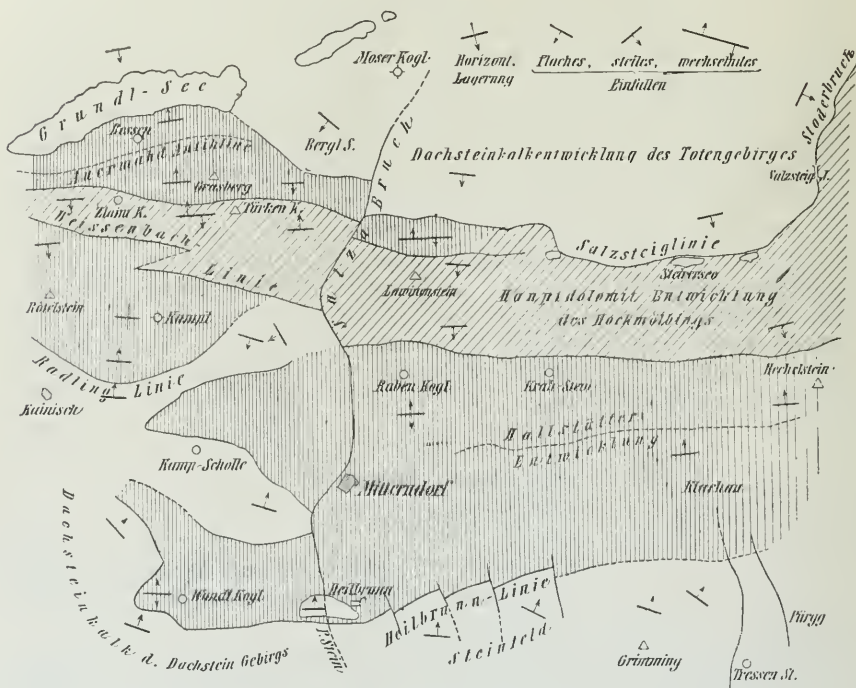 Moser Kogl.
Horizont.
Lagerung
flaches, steiles, wechselndes
Einfallen
Grundl-See
Ressen
Auermahd Antikline
Grasberg
Bergl S.
Salza Bruch
Dachsteinkalkentwicklung des Totengebirges
Stoderbruch
Salzsteig J.
Zlaim K.
Türken K.
Weissenbach
Linie
Salzsteiglinie
Steirersee
Lawinenstein
Hauptdolomit Entwicklung
des Hochmölbings
Rötelstein
Kampl
Radling-Linie
Kainisch
Raben Kogl
Krah-Stein
Hechelstein
Hallstätter
Entwicklung
Kamp-Scholle
Mitterndorf
Klachau
Dachsteinkalk d. Dachstein Gebirgs
Wandl Kogl
Heilbrunn
P. Stein
Heilbrunn-Linie
Steinfeld
Grimming
Pürgg
Tressen St.